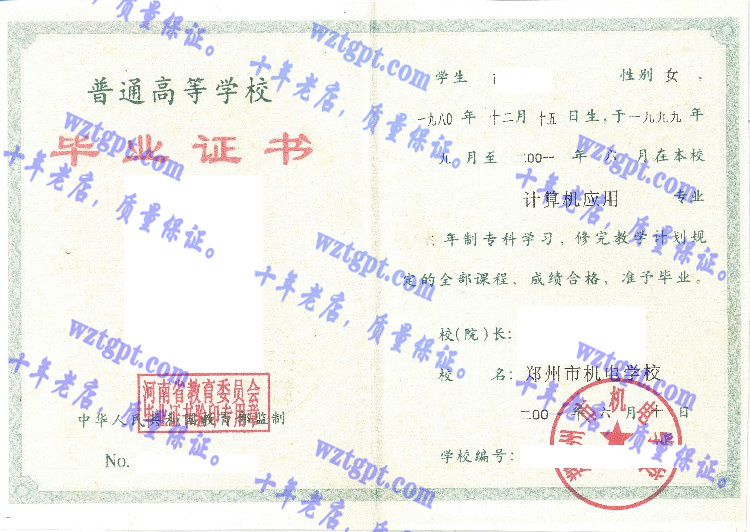 普通高等学校
毕业证书
河南省教育委员会
毕业证书验印专用章
中华人民共和国教育部监制
No.
学生 性别 女 ，
一九八〇年 十二月 十五 日生，于一九九九年
九 月至 二00一 年 六 月在本校
计算机应用 专业
年制专科学习，修完教学计划规
定的全部课程，成绩合格，准予毕业。
校(院)长：
校 名：郑州市机电学校
二00一 年 六 月 十 日
学校编号：
wztgpt.com
十年老店，质量保证。
wztgpt.com
十年老店，质量保证。
wztgpt.com
十年老店，质量保证。
wztgpt.com
十年老店，质量保证。
wztgpt.com
十年老店，质量保证。
wztgpt.com
十年老店，质量保证。
wztgpt.com
十年老店，质量保证。
wztgpt.com
十年老店，质量保证。